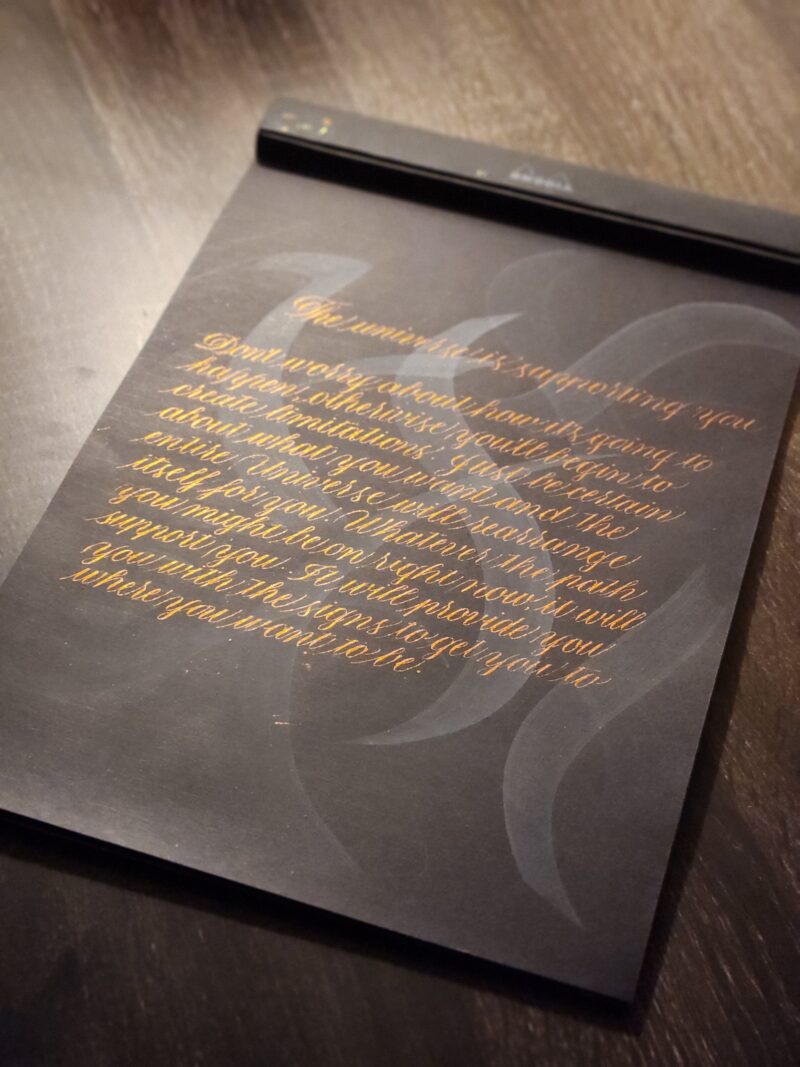 RHODIA
The universe is supporting you
Dont worry about how its going to
happen, otherwise you'll begin to
create limitations. Just be certain
about what you want and the
entire Universe will rearrange
itself for you. Whatever the path
you might be on right now, it will
support you. It will provide you
you with the signs to get you to
where you want to be.